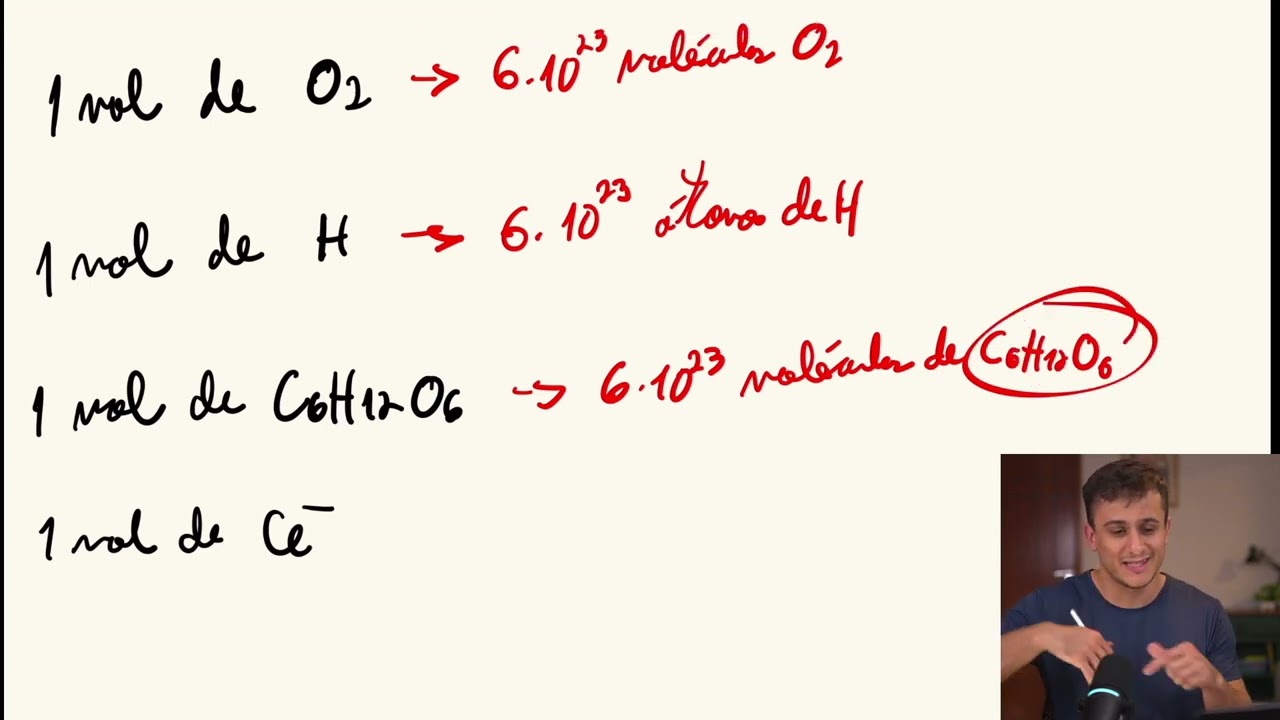 1 mol de O₂ → 6.10²³ moléculas O₂
1 mol de H → 6.10²³ átomos de H
1 mol de C₆H₁₂O₆ → 6.10²³ moléculas de C₆H₁₂O₆
1 mol de Cl⁻